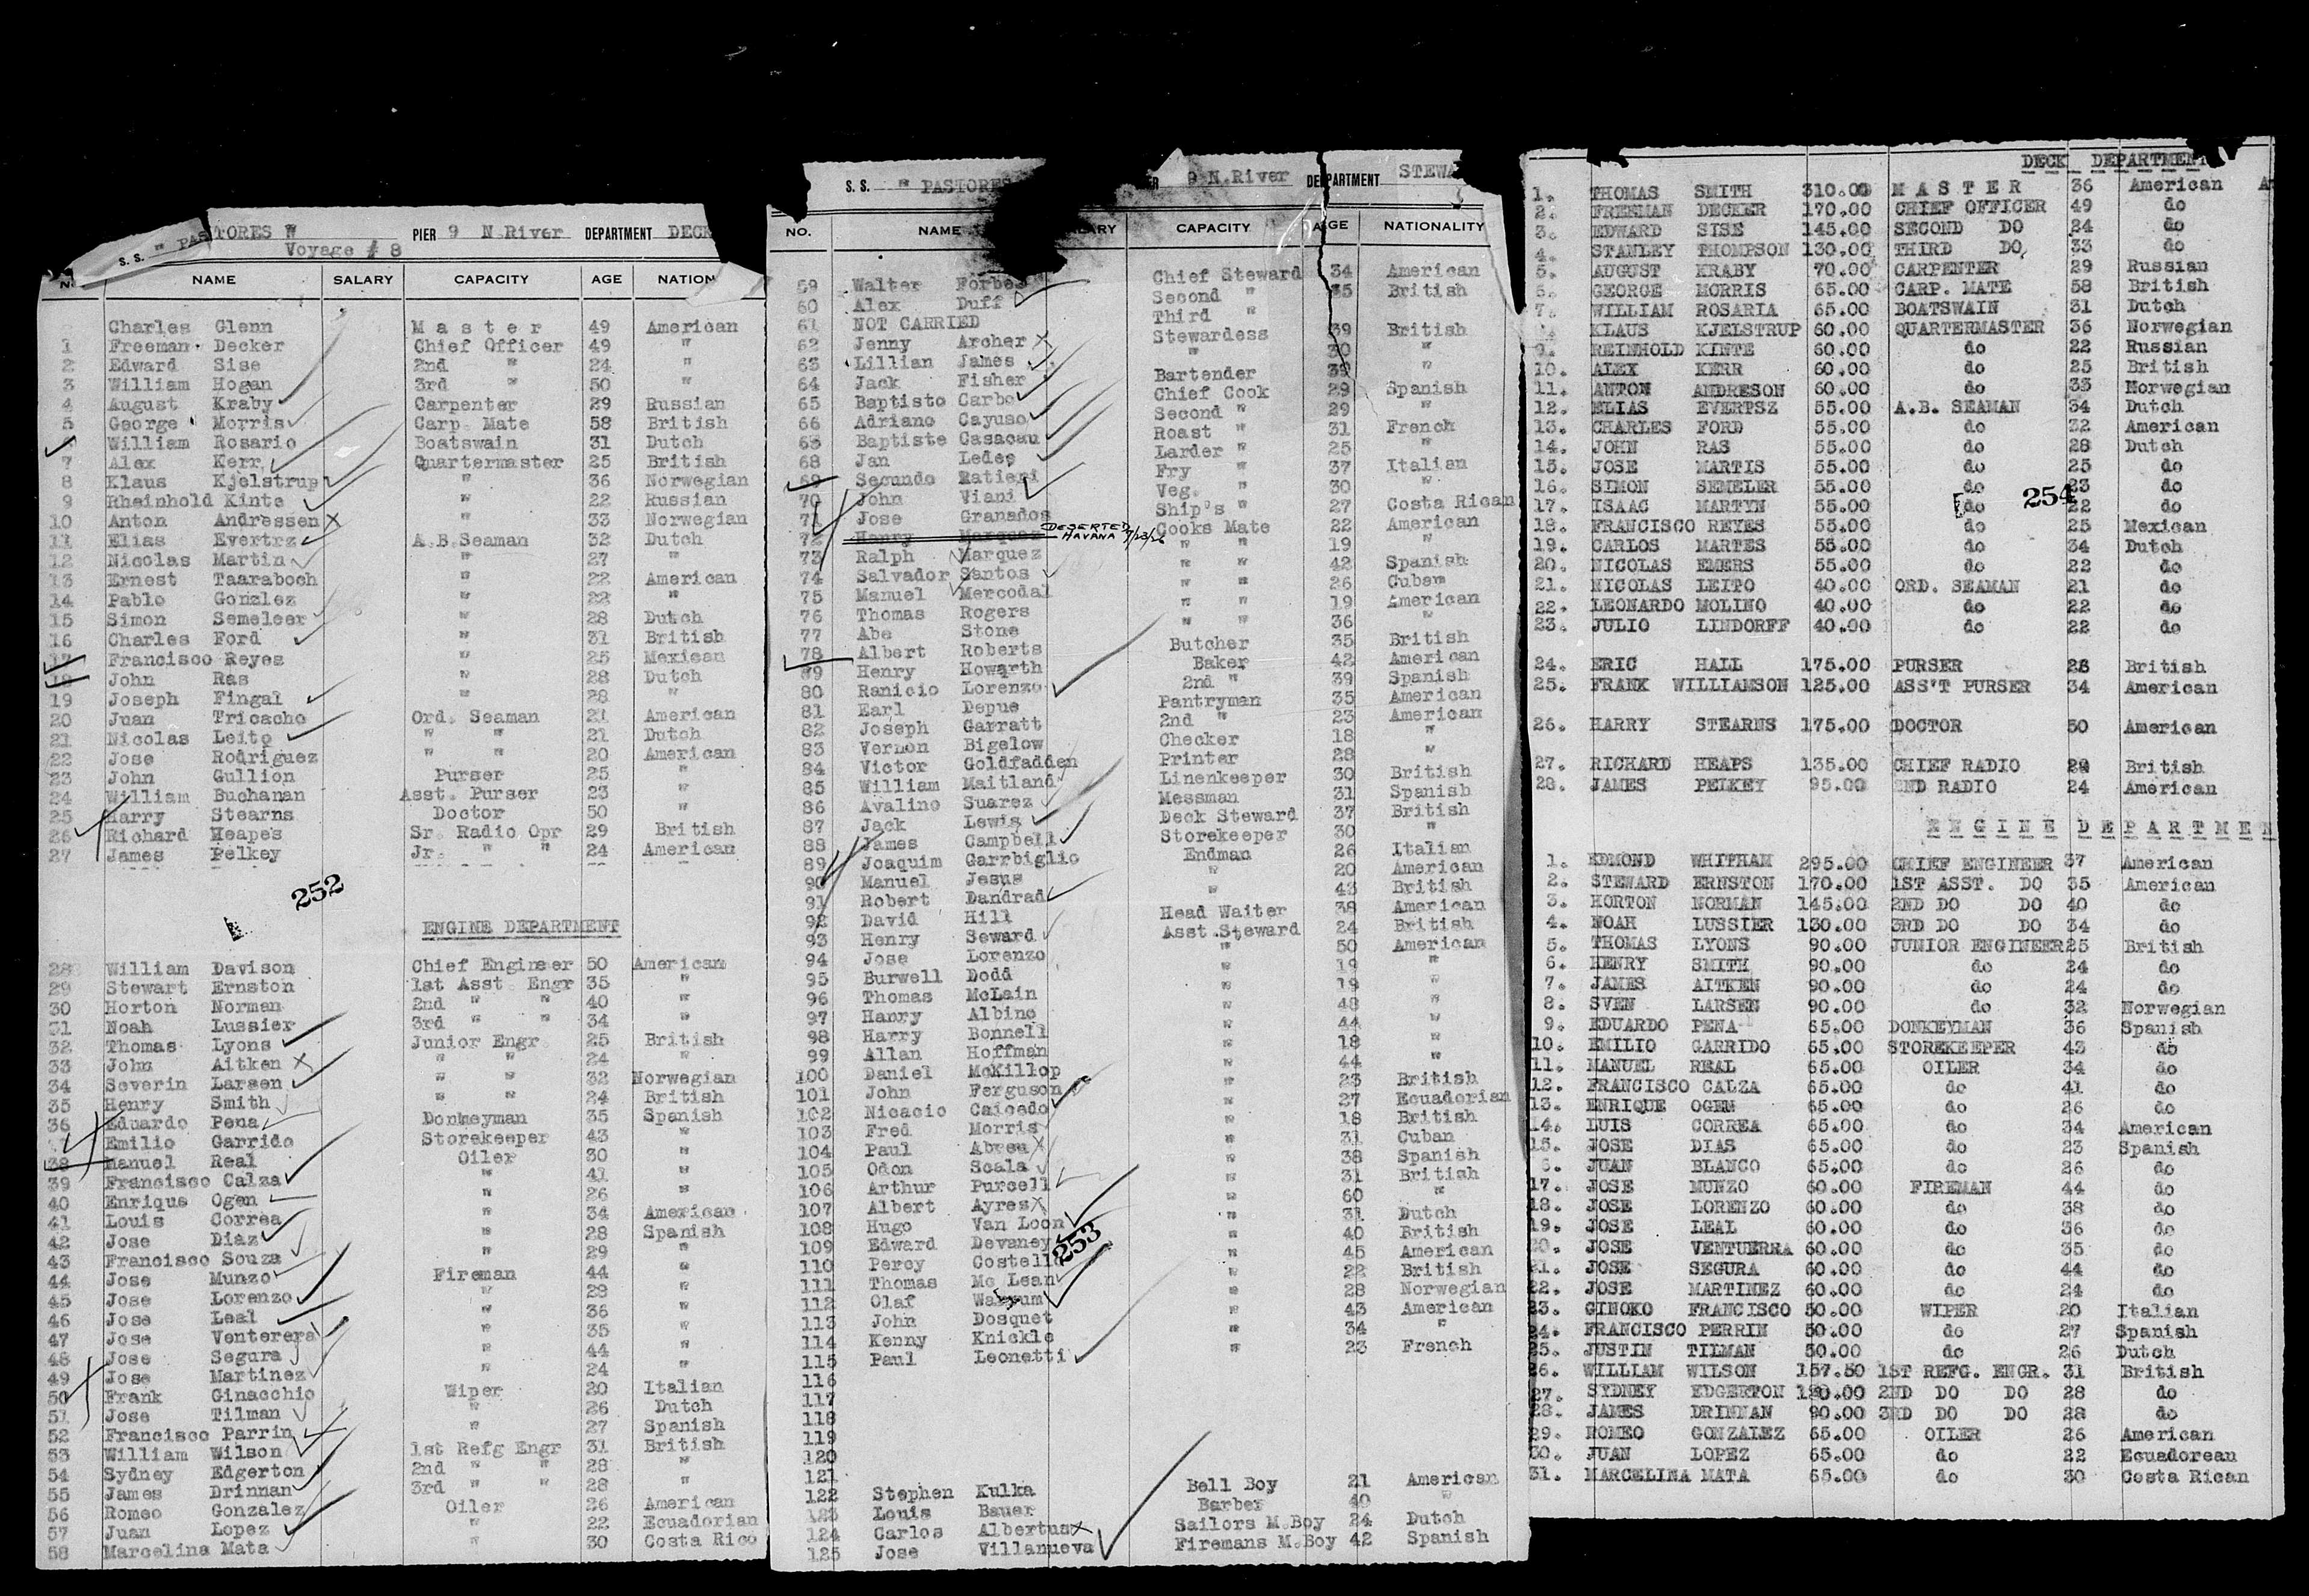 S. S. " PASTORES W PIER 9 N.River DEPARTMENT DECK
Voyage # 8
NAME SALARY CAPACITY AGE NATION
Charles Glenn Master 49 American
1 Freeman Decker Chief Officer 49 "
2 Edward Sise 2nd " 24 "
3 William Hogan 3rd " 50 "
4 August Kraby Carpenter 29 Russian
5 George Morris Carp. Mate 58 British
William Rosario Boatswain 31 Dutch
7 Alex Kerr Quartermaster 25 British
8 Klaus Kjelstrup " 36 Norwegian
9 Rheinhold Kinte " 22 Russian
10 Anton Andressen " 33 Norwegian
11 Elias Evertrz A.B.Seaman 32 Dutch
12 Nicolas Martin " 27 "
13 Ernest Taaraboch " 22 American
14 Pablo Gonzlez " 22 "
15 Simon Semeleer " 28 Dutch
16 Charles Ford " 31 British
17 Francisco Reyes " 25 Mexican
18 John Ras " 28 Dutch
19 Joseph Fingal " 28 "
20 Juan Tricacho Ord. Seaman 21 American
21 Nicolas Leito " " 21 Dutch
22 Jose Rodriguez " " 20 American
23 John Gullion Purser 25 "
24 William Buchanan Asst. Purser 23 "
25 Harry Stearns Doctor 50 "
26 Richard Heapes Sr. Radio Opr 29 British
27 James Pelkey Jr. " " 24 American
252
ENGINE DEPARTMENT
28 William Davison Chief Engineer 50 American
29 Stewart Ernston 1st Asst Engr 35 "
30 Horton Norman 2nd " " 40 "
31 Noah Lussier 3rd " " 34 "
32 Thomas Lyons Junior Engr 25 British
33 John Aitken " " 24 "
34 Severin Larsen " " 32 Norwegian
35 Henry Smith " " 24 British
36 Eduardo Pena Donkeyman 35 Spanish
Emilio Garrido Storekeeper 43 "
38 Manuel Real Oiler 30 "
39 Francisco Calza " 41 "
40 Enrique Ogen " 26 "
41 Louis Correa " 34 American
42 Jose Diaz " 28 Spanish
43 Francisco Souza " 29 "
44 Jose Munzo Fireman 44 "
45 Jose Lorenzo " 28 "
46 Jose Leal " 36 "
47 Jose Venterera " 35 "
48 Jose Segura " 44 "
49 Jose Martinez " 24 "
50 Frank Ginacchio Wiper 20 Italian
51 Jose Tilman " 26 Dutch
52 Francisco Parrin " 27 Spanish
53 William Wilson 1st Refg Engr 31 British
54 Sydney Edgerton 2nd " " 28 "
55 James Drinnan 3rd " " 28 "
56 Romeo Gonzalez Oiler 26 American
57 Juan Lopez " 22 Ecuadorian
58 Marcelina Mata " 30 Costa Rico
S. S. " PASTORES 9 N.River DEPARTMENT STEWA
NO. NAME CAPACITY AGE NATIONALITY
59 Walter Forbes Chief Steward 34 American
60 Alex Duff Second " 35 British
61 NOT CARRIED Third "
62 Jenny Archer Stewardess 39 British
63 Lillian James " 30 "
64 Jack Fisher Bartender 39 "
65 Baptisto Carbo Chief Cook 29 Spanish
66 Adriano Cayuso Second " 29 "
Baptiste Casacau Roast " 31 French
68 Jan Ledee Larder " 25 "
69 Secundo Ratieri Fry " 37 Italian
70 John Viani Veg. " 30 "
71 Jose Granados Ship's " 27 Costa Rican
72 Henry Marquez DESERTED HAVANA 7/23/26 Cooks Mate 22 American
73 Ralph Marquez " " 19 "
74 Salvador Santos " " 42 Spanish
75 Manuel Mercodal " " 26 Cuban
76 Thomas Rogers " " 19 American
77 Abe Stone " " 36 "
78 Albert Roberts Butcher 35 British
79 Henry Howarth Baker 42 American
80 Ranicio Lorenzo 2nd " 39 Spanish
81 Earl Depue Pantryman 35 American
82 Joseph Garratt 2nd " 23 American
83 Vernon Bigelow Checker 18 "
84 Victor Goldfadden Printer 28 "
85 William Maitland Linenkeeper 30 British
86 Avalino Suarez Messman 31 Spanish
87 Jack Lewis Deck Steward 37 British
88 James Campbell Storekeeper 30 "
89 Joaquim Garrbiglio Endman 26 Italian
90 Manuel Jesus " 20 American
91 Robert Dandrad " 43 British
92 David Hill Head Waiter 38 American
93 Henry Seward Asst.Steward 24 British
94 Jose Lorenzo " 50 American
95 Burwell Dodd " 19 "
96 Thomas McLain " 19 "
97 Hanry Albino " 48 "
98 Harry Bonnell " 44 "
99 Allan Hoffman " 18 "
100 Daniel McKillop " 44 "
101 John Ferguson " 23 British
102 Nicacio Caicedo " 27 Ecuadorian
103 Fred Morris " 18 British
104 Paul Abrea " 31 Cuban
105 Odon Scala " 38 Spanish
106 Arthur Purcell " 31 British
107 Albert Ayres " 60 "
108 Hugo Van Loon " 31 Dutch
109 Edward Devaney " 40 British
253
110 Percy Costello " 45 American
111 Thomas Mc Lean " 22 British
112 Olaf " 28 Norwegian
113 John Dosquet " 43 American
114 Kenny Knickle " 34 "
115 Paul Leonetti " 23 French
116
117
118
119
120
121
122 Stephen Kulka Bell Boy 21 American
123 Louis Bauer Barber 40 "
124 Carlos Albertus Sailors M.Boy 24 Dutch
125 Jose Villanueva Firemans M.Boy 42 Spanish
DECK DEPARTMENT
1. THOMAS SMITH 310.00 MASTER 36 American
2. FREEMAN DECKER 170.00 CHIEF OFFICER 49 do
3. EDWARD SISE 145.00 SECOND DO 24 do
4. STANLEY THOMPSON 130.00 THIRD DO, 33 do
5. AUGUST KRABY 70.00 CARPENTER 29 Russian
6. GEORGE MORRIS 65.00 CARP. MATE 58 British
7. WILLIAM ROSARIA 65.00 BOATSWAIN 31 Dutch
KLAUS KJELSTRUP 60.00 QUARTERMASTER 36 Norwegian
9. REINHOLD KINTE 60.00 do 22 Russian
10. ALEX KERR 60.00 do 25 British
11. ANTON ANDRESON 60.00 do 33 Norwegian
12. ELIAS EVERTSZ 55.00 A.B. SEAMAN 34 Dutch
13. CHARLES FORD 55.00 do 32 American
14. JOHN RAS 55.00 do 28 Dutch
15. JOSE MARTIS 55.00 do 25 do
16. SIMON SEMELER 55.00 do 23 do
254
17. ISAAC MARTYN 55.00 do 22 do
18. FRANCISCO REYES 55.00 do 25 Mexican
19. CARLOS MARTES 55.00 do 34 Dutch
20. NICOLAS EMERS 55.00 do 22 do
21. NICOLAS LEITO 40.00 ORD. SEAMAN 21 do
22. LEONARDO MOLINO 40.00 do 22 do
23. JULIO LINDORFF 40.00 do 22 do
24. ERIC HALL 175.00 PURSER 28 British
25. FRANK WILLIAMSON 125.00 ASS'T PURSER 34 American
26. HARRY STEARNS 175.00 DOCTOR 50 American
27. RICHARD HEAPS 135.00 CHIEF RADIO 29 British
28. JAMES PELKEY 95.00 2ND RADIO 24 American
ENGINE DEPARTMEN
1. EDMOND WHITHAM 295.00 CHIEF ENGINEER 37 American
2. STEWARD ERNSTON 170.00 1ST ASST. DO 35 American
3. HORTON NORMAN 145.00 2ND DO DO 40 do
4. NOAH LUSSIER 130.00 3RD DO DO 34 do
5. THOMAS LYONS 90.00 JUNIOR ENGINEER 25 British
6. HENRY SMITH 90.00 do 24 do
7. JAMES AITKEN 90.00 do 24 do
8. SVEN LARSEN 90.00 do 32 Norwegian
9. EDUARDO PENA 65.00 DONKEYMAN 36 Spanish
10. EMILIO GARRIDO 65.00 STOREKEEPER 43 do
11. MANUEL REAL 65.00 OILER 34 do
12. FRANCISCO CALZA 65.00 do 41 do
13. ENRIQUE OGEN 65.00 do 26 do
14. LUIS CORREA 65.00 do 34 American
15. JOSE DIAS 65.00 do 23 Spanish
6. JUAN BLANCO 65.00 do 26 do
17. JOSE MUNZO 60.00 FIREMAN 44 do
18. JOSE LORENZO 60.00 do 38 do
19. JOSE LEAL 60.00 do 36 do
20. JOSE VENTUERRA 60.00 do 35 do
21. JOSE SEGURA 60.00 do 44 do
22. JOSE MARTINEZ 60.00 do 24 do
23. GINOKO FRANCISCO 50.00 WIPER 20 Italian
24. FRANCISCO PERRIN 50.00 do 27 Spanish
25. JUSTIN TILMAN 50.00 do 26 Dutch
26. WILLIAM WILSON 157.50 1ST REFG. ENGR. 31 British
27. SYDNEY EDGERTON 120.00 2ND DO DO 28 do
28. JAMES DRINNAN 90.00 3RD DO DO 28 do
29. ROMEO GONZALEZ 65.00 OILER 26 American
30. JUAN LOPEZ 65.00 do 22 Ecuadorean
31. MARCELINA MATA 65.00 do 30 Costa Rican